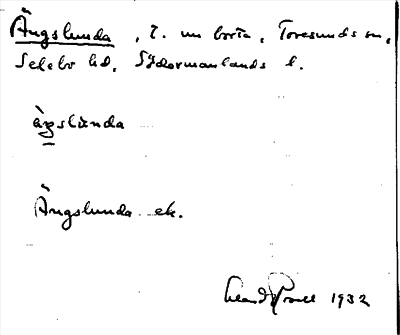 Ängslunda, t. un borta, Toresunds sn,
Selebo hd, Södermanlands l.
ängslùnda
Ängslunda ek.
1932